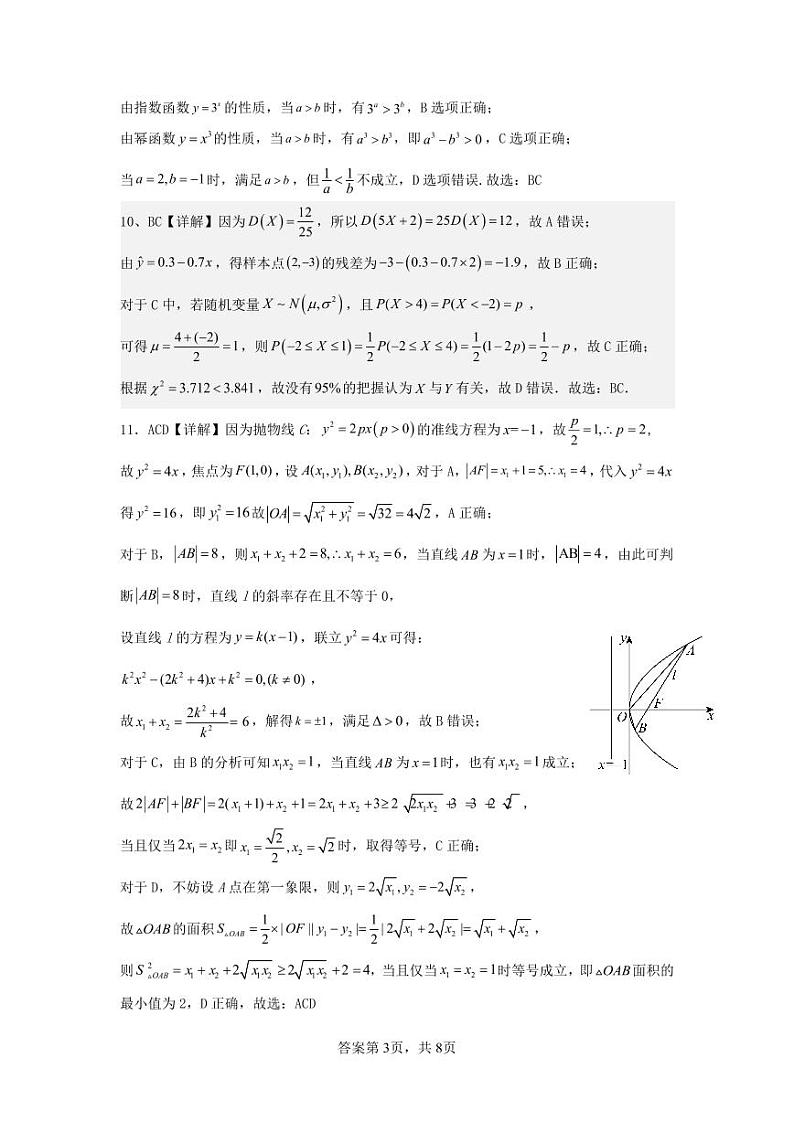 由指数函数 y = 3ˣ 的性质，当 a > b 时，有 3ᵃ > 3ᵇ，B 选项正确；
由幂函数 y = x³ 的性质，当 a > b 时，有 a³ > b³，即 a³ − b³ > 0，C 选项正确；
当 a = 2, b = −1 时，满足 a > b，但 1/a < 1/b 不成立，D 选项错误. 故选：BC
10、BC【详解】因为 D(X) = 12/25，所以 D(5X + 2) = 25D(X) = 12，故 A 错误；
由 ŷ = 0.3 − 0.7x，得样本点 (2,−3) 的残差为 −3 − (0.3 − 0.7 × 2) = −1.9，故 B 正确；
对于 C 中，若随机变量 X ~ N(μ,σ²)，且 P(X > 4) = P(X < −2) = p，
可得 μ = (4 + (−2))/2 = 1，则 P(−2 ≤ X ≤ 1) = 1/2 P(−2 ≤ X ≤ 4) = 1/2 (1 − 2p) = 1/2 − p，故 C 正确；
根据 χ² = 3.712 < 3.841，故没有 95% 的把握认为 X 与 Y 有关，故 D 错误．故选：BC．
11．ACD【详解】因为抛物线 C：y² = 2px(p > 0) 的准线方程为 x = −1，故 p/2 = 1, ∴ p = 2,
故 y² = 4x，焦点为 F(1,0)，设 A(x₁, y₁), B(x₂, y₂)，对于 A，|AF| = x₁ + 1 = 5, ∴ x₁ = 4，代入 y² = 4x
得 y² = 16，即 y₁² = 16 故 |OA| = √(x₁² + y₁²) = √32 = 4√2，A 正确；
对于 B，|AB| = 8，则 x₁ + x₂ + 2 = 8, ∴ x₁ + x₂ = 6，当直线 AB 为 x = 1 时，|AB| = 4，由此可判
断 |AB| = 8 时，直线 l 的斜率存在且不等于 0，
设直线 l 的方程为 y = k(x − 1)，联立 y² = 4x 可得：
k²x² − (2k² + 4)x + k² = 0, (k ≠ 0)，
故 x₁ + x₂ = (2k² + 4)/k² = 6，解得 k = ±1，满足 Δ > 0，故 B 错误；
对于 C，由 B 的分析可知 x₁x₂ = 1，当直线 AB 为 x = 1 时，也有 x₁x₂ = 1 成立；
故 2|AF| + |BF| = 2(x₁ + 1) + x₂ + 1 = 2x₁ + x₂ + 3 ≥ 2√(2x₁x₂) + 3 = 3 + 2√2，
当且仅当 2x₁ = x₂ 即 x₁ = √2/2, x₂ = √2 时，取得等号，C 正确；
对于 D，不妨设 A 点在第一象限，则 y₁ = 2√x₁, y₂ = −2√x₂，
故 △OAB 的面积 S△OAB = 1/2 × |OF||y₁ − y₂| = 1/2 |2√x₁ + 2√x₂| = √x₁ + √x₂，
则 S²△OAB = x₁ + x₂ + 2√(x₁x₂) ≥ 2√(x₁x₂) + 2 = 4，当且仅当 x₁ = x₂ = 1 时等号成立，即 △OAB 面积的
最小值为 2，D 正确，故选：ACD
y
A
l
F
O
B
x
x=−1
答案第 3页，共 8页